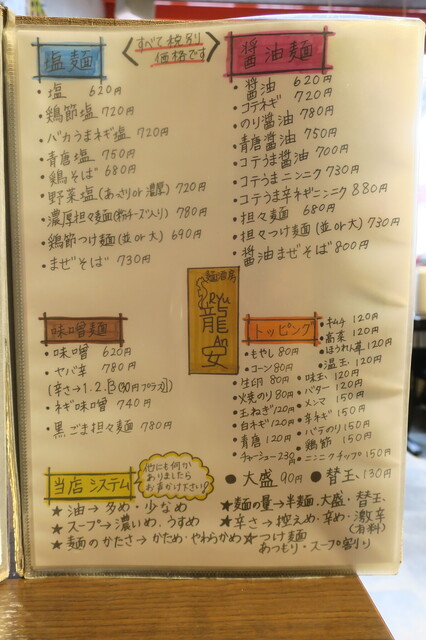 塩麺
すべて税別
価格です
・塩 620円
・鶏節塩 720円
・バカうまネギ塩 720円
・青唐塩 750円
・鶏そば 680円
・野菜塩(あっさりor濃厚) 720円
・濃厚担々麺(粉チーズ入り) 780円
・鶏節つけ麺(並or大) 690円
・まぜそば 730円
醤油麺
・醤油 620円
・コテネギ 720円
・のり醤油 780円
・青唐醤油 750円
・コテうま醤油 700円
・コテうまニンニク 730円
・コテうま辛ネギニンニク 880円
・担々麺 680円
・担々つけ麺(並or大) 730円
・醤油まぜそば 800円
Ryu
龍
An
安
味噌麺
・味噌 620円
・ヤバ辛 780円
・ネギ味噌 740円
・黒ごま担々麺 780円
トッピング
・もやし 80円
・コーン 80円
・生卵 80円
・焼のり 80円
・玉ねぎ 120円
・白ネギ 120円
・青唐 120円
・チャーシュー 230円
・キムチ 120円
・高菜 120円
・ほうれん草 120円
・温玉 120円
・味玉 120円
・バター 120円
・メンマ 150円
・辛ネギ 150円
・バラのり 150円
・鶏節 150円
・ニンニクチップ 150円
●大盛 90円 ●替玉 130円
当店システム
他にも何か
ありましたら
お声がけ下さい!
★油→多め・少なめ
★スープ→濃いめ、うすめ
★麺のかたさ→かため・やわらかめ
★麺の量→半麺、大盛・替玉
★辛さ→控えめ・辛め・激辛
(有料)
★つけ麺
あつもり・スープ割り